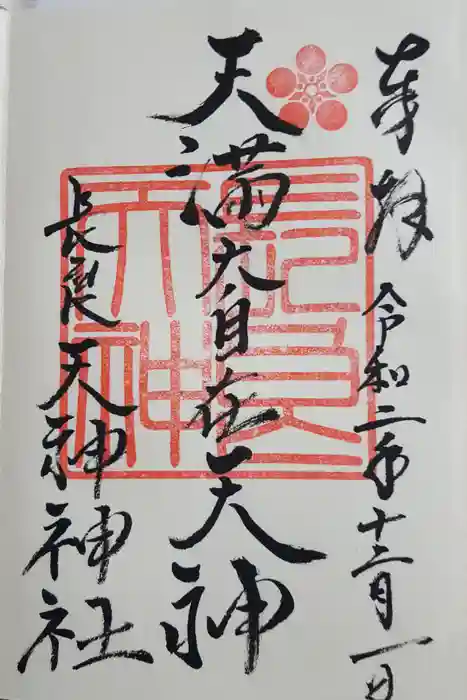 奉拝
令和二年十二月一日
天満大自在天神
長良天神神社
長良天神